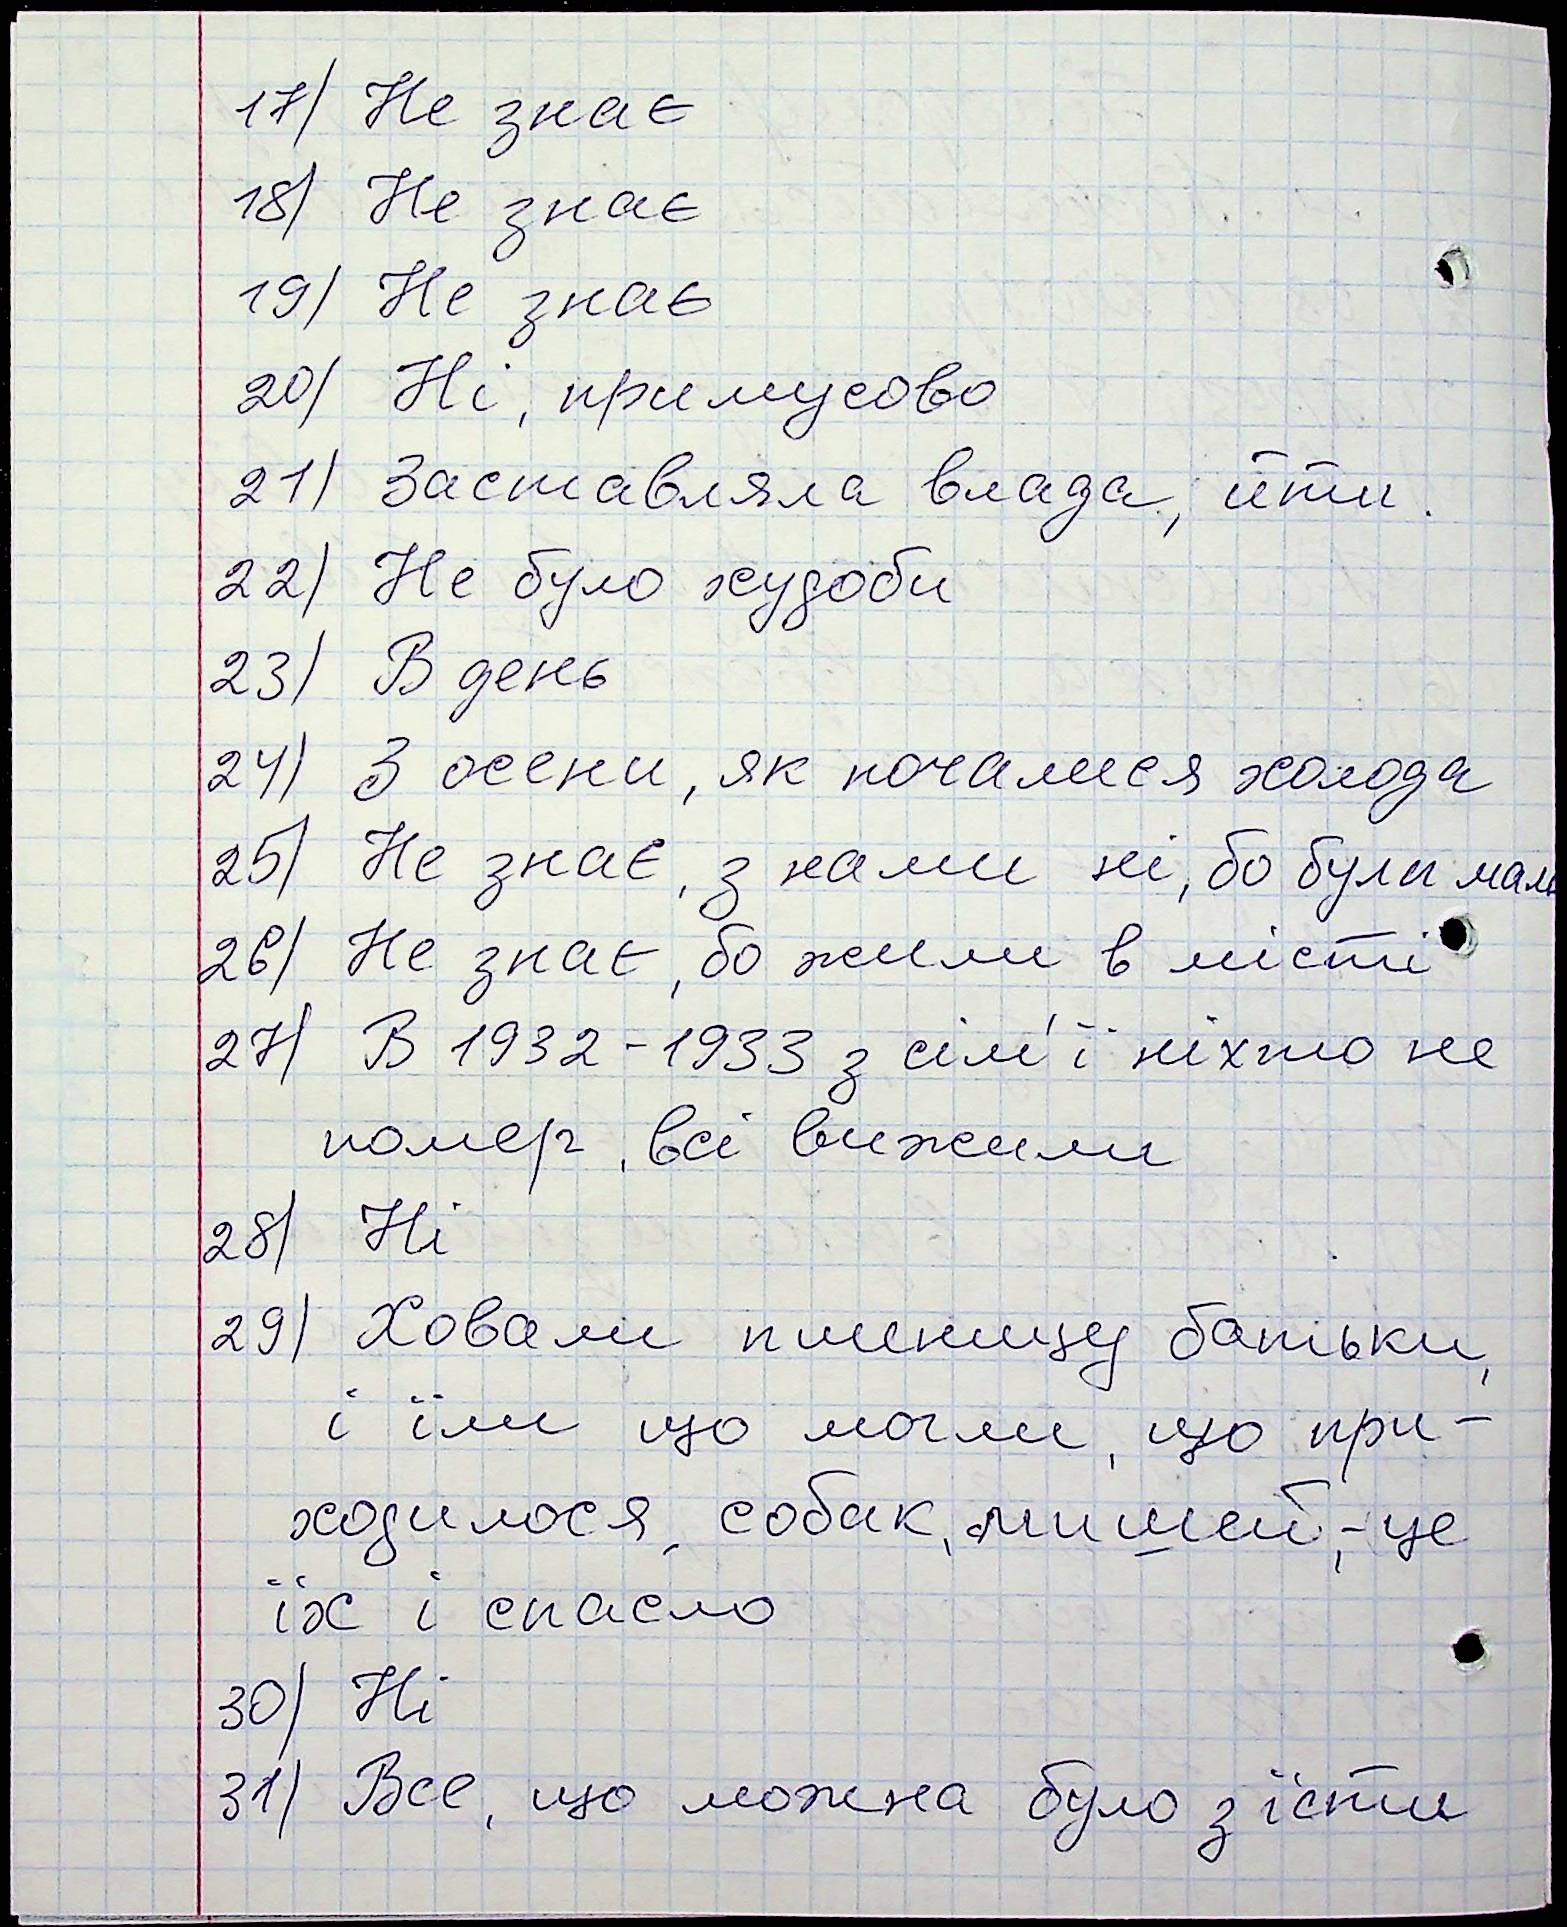 17) Не знає
18) Не знає
19) Не знає
20) Ні, примусово
21) Заставляла влада, йти.
22) Не було худоби
23) В день
24) З осени, як почалися холода
25) Не знає, з нами ні, бо були малі
26) Не знає, бо жили в місті
27) В 1932-1933 з сім'ї ніхто не
помер, всі вижили
28) Ні
29) Ховали пшеницу батьки,
і їли що могли, що при-
ходилося, собак, мишей, - це
їх і спасло
30) Ні
31) Все, що можна було з їсти